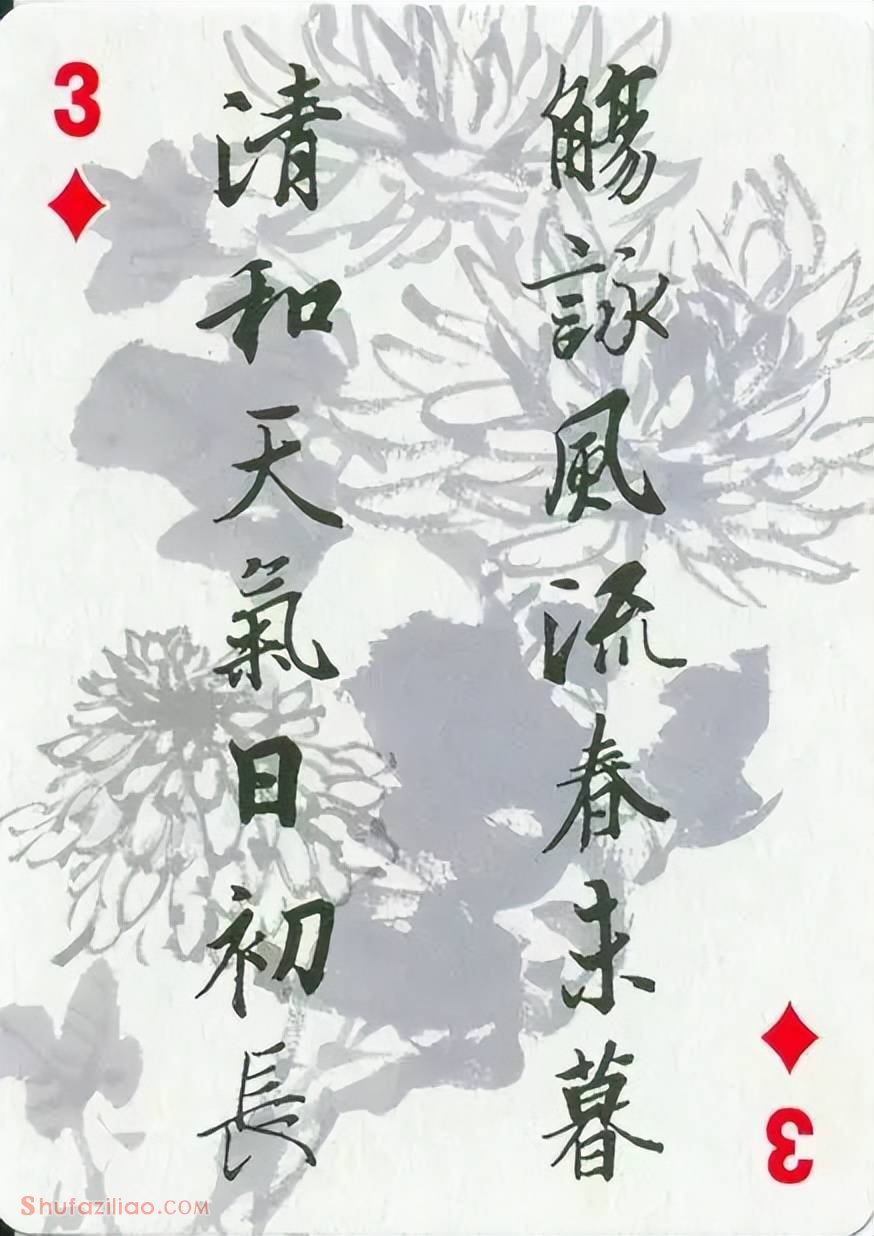 3
觴詠風流春未暮
清和天氣日初長
3
Shufaziliao.COM